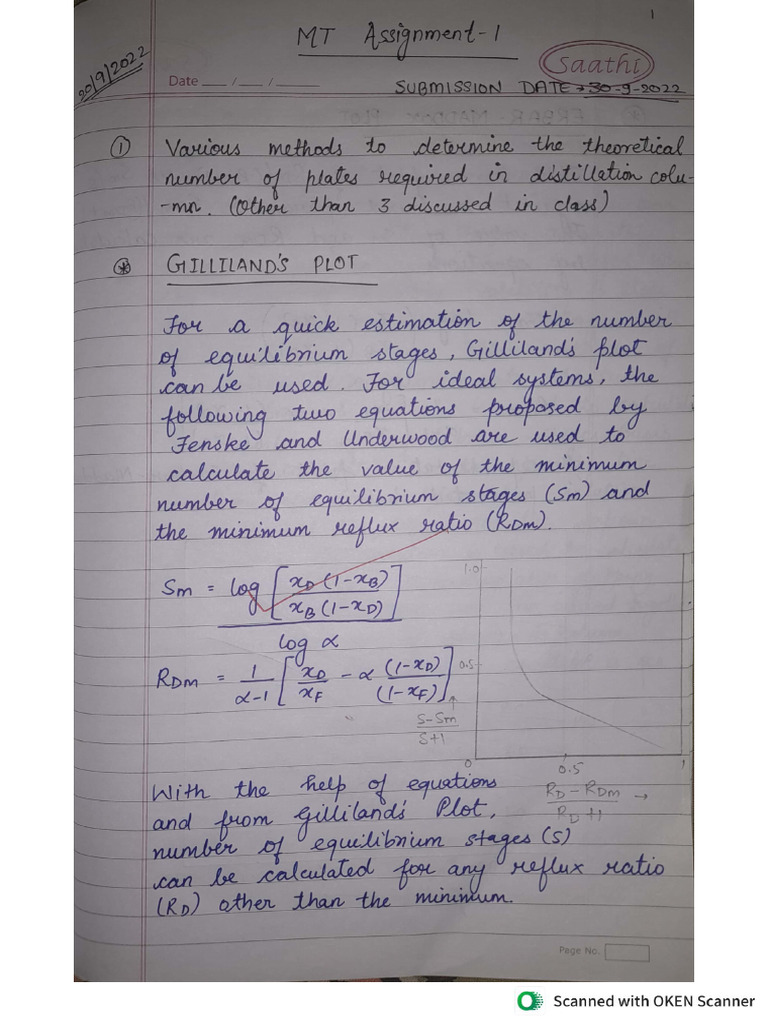 1
MT Assignment-1
20/9/2022
Date ___ / ___ / ___
Saathi
SUBMISSION DATE → 30-9-2022
① Various methods to determine the theoretical
number of plates required in distillation colu-
-mn. (Other than 3 discussed in class)
⊛ GILLILAND'S PLOT
For a quick estimation of the number
of equilibrium stages, Gilliland's plot
can be used. For ideal systems, the
following two equations proposed by
Fenske and Underwood are used to
calculate the value of the minimum
number of equilibrium stages (Sm) and
the minimum reflux ratio (RDm).
Sm = log [ xD (1-xB) / xB (1-xD) ] / log α
RDm = 1/(α-1) [ xD/xF - α (1-xD)/(1-xF) ]
1.0
0.5
↑
S-Sm / S+1
0
0.5
1
RD - RDm / RD +1 →
With the help of equations
and from Gilliland's Plot,
number of equilibrium stages (S)
can be calculated for any reflux ratio
(RD) other than the minimum.
Page No.
Scanned with OKEN Scanner